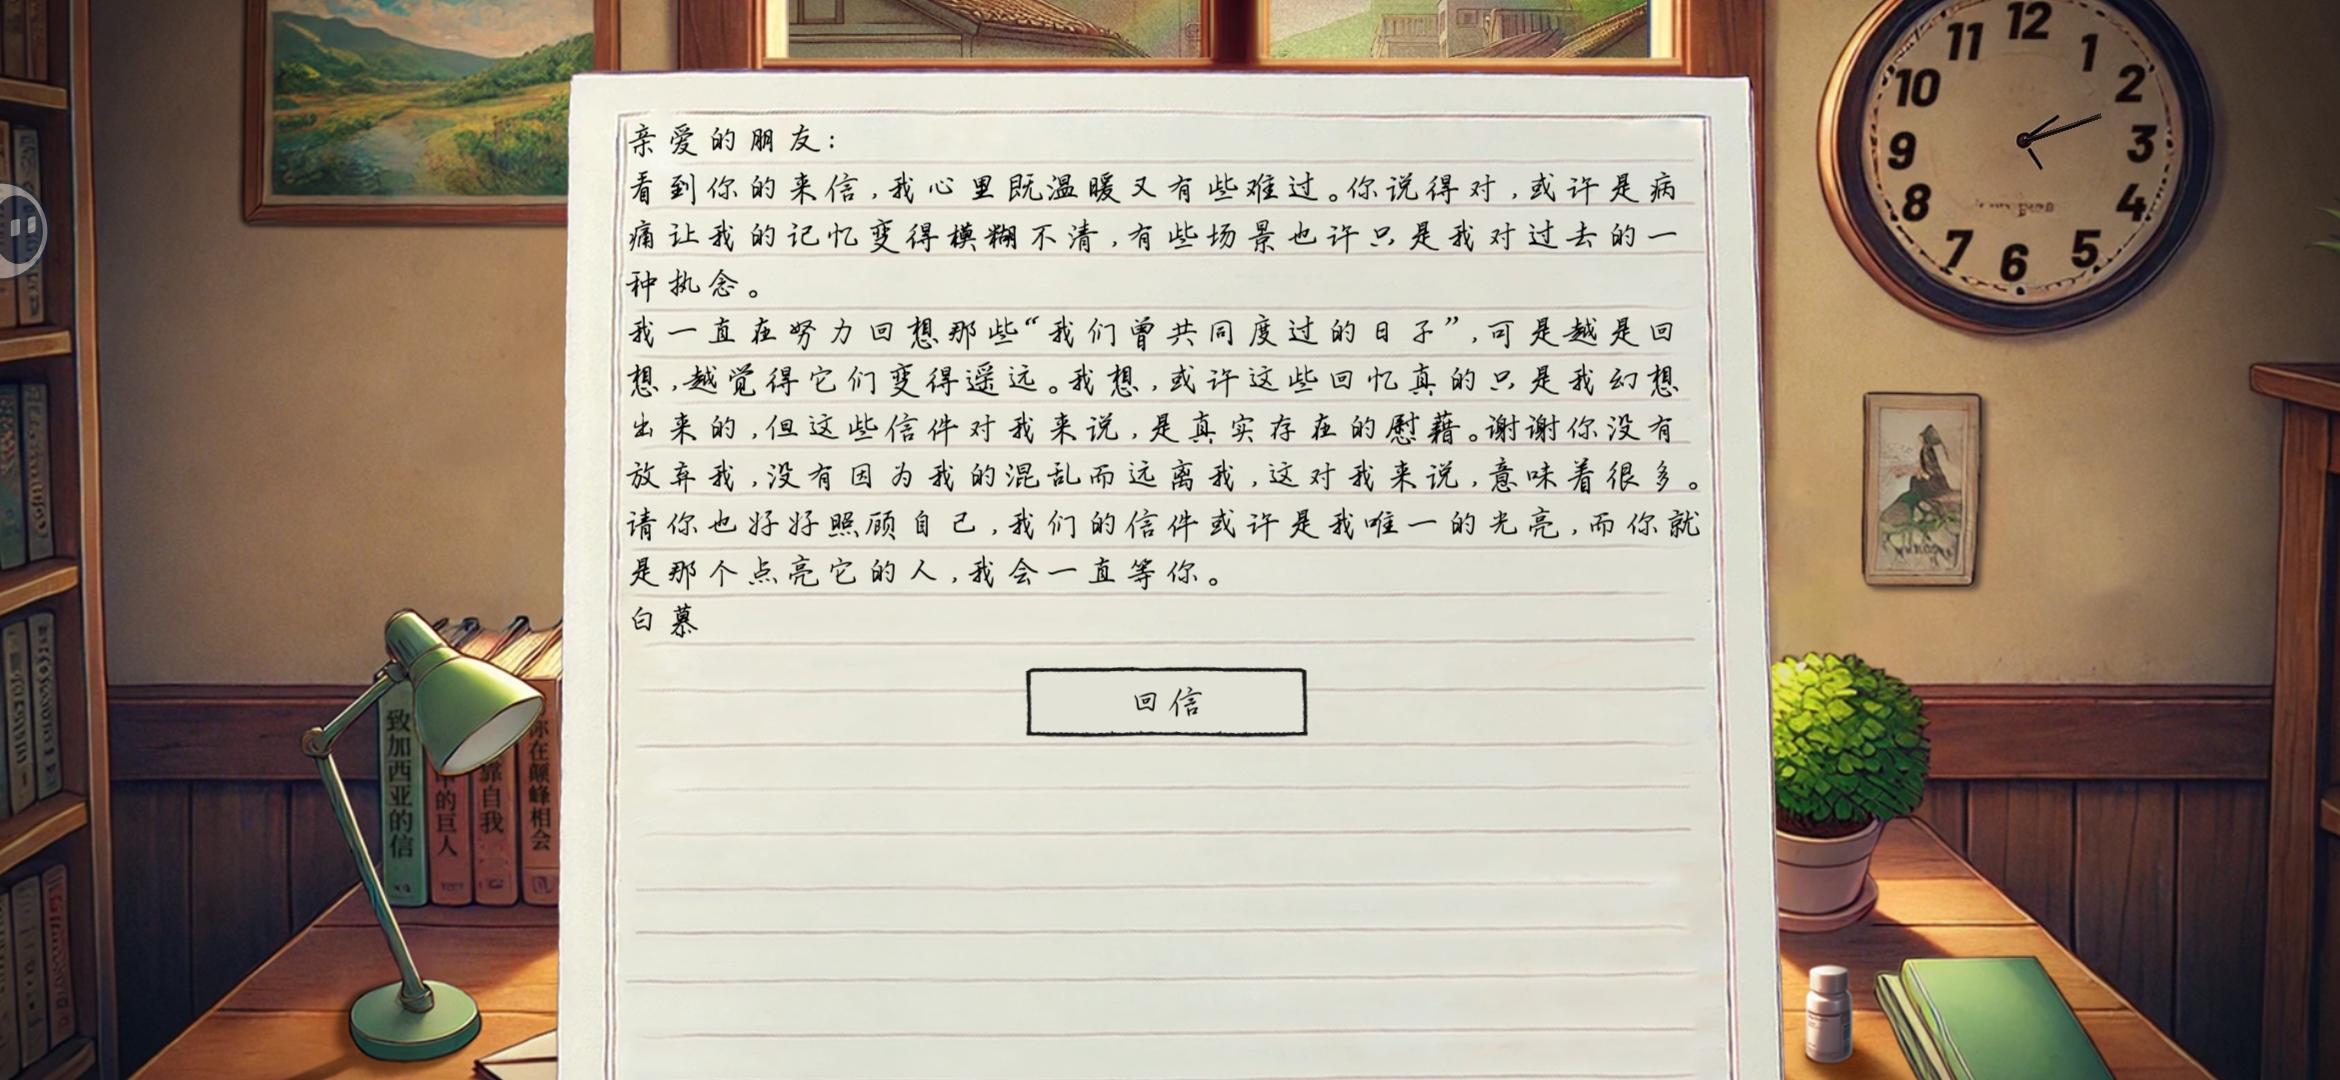 亲爱的朋友：
看到你的来信，我心里既温暖又有些难过。你说得对，或许是病
痛让我的记忆变得模糊不清，有些场景也许只是我对过去的一
种执念。
我一直在努力回想那些“我们曾共同度过的日子”，可是越是回
想，越觉得它们变得遥远。我想，或许这些回忆真的只是我幻想
出来的，但这些信件对我来说，是真实存在的慰藉。谢谢你没有
放弃我，没有因为我的混乱而远离我，这对我来说，意味着很多。
请你也好好照顾自己，我们的信件或许是我唯一的光亮，而你就
是那个点亮它的人，我会一直等你。
白慕
回信
致加西亚的信
中的巨人
靠自我
你在颠峰相会
12
1
2
3
4
5
6
7
8
9
10
11